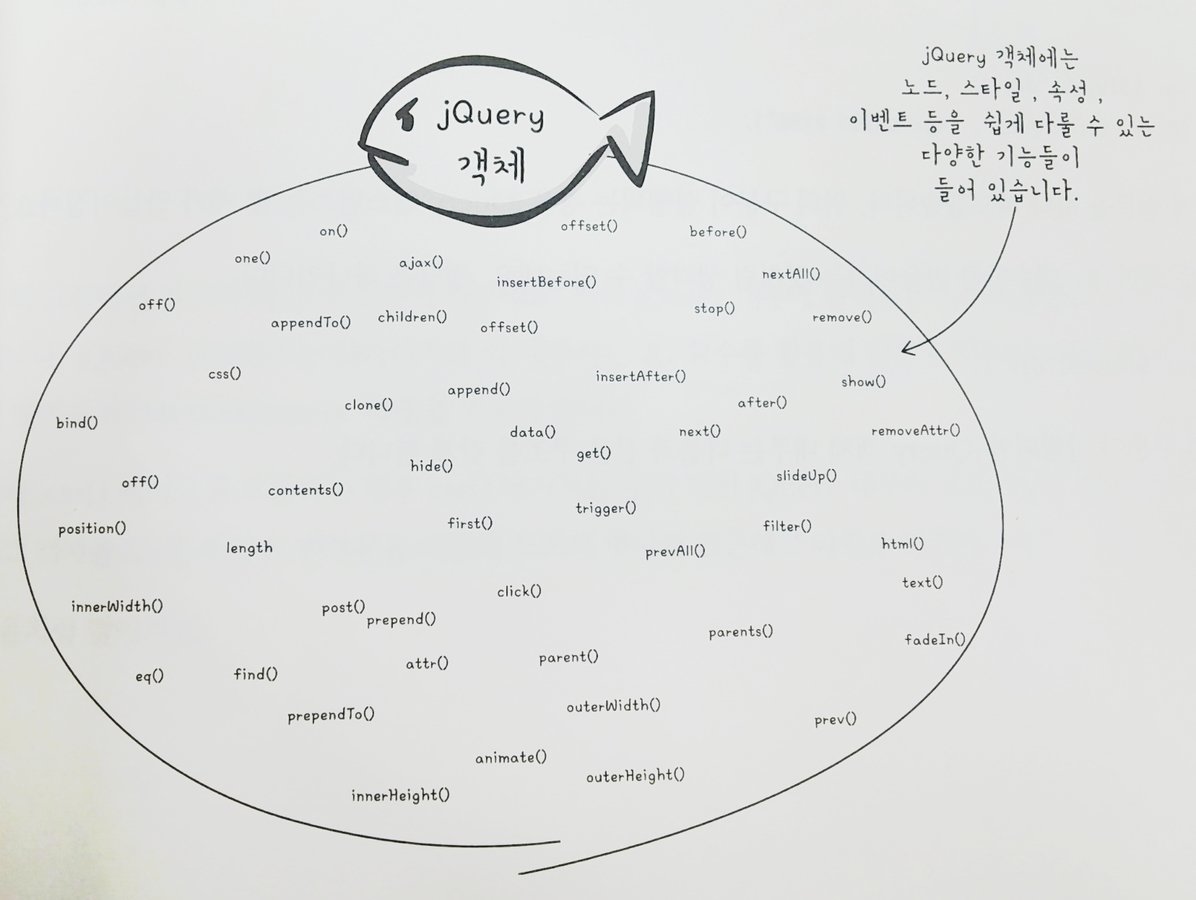 jQuery
객체
jQuery 객체에는
노드, 스타일, 속성,
이벤트 등을 쉽게 다룰 수 있는
다양한 기능들이
들어 있습니다.
on()
offset()
before()
one()
ajax()
insertBefore()
nextAll()
off()
appendTo()
children()
offset()
stop()
remove()
css()
clone()
append()
insertAfter()
after()
show()
bind()
data()
next()
removeAttr()
get()
hide()
off()
contents()
slideUp()
trigger()
position()
first()
filter()
length
prevAll()
html()
click()
text()
innerWidth()
post()
prepend()
parents()
fadeIn()
eq()
find()
attr()
parent()
prependTo()
outerWidth()
prev()
animate()
outerHeight()
innerHeight()